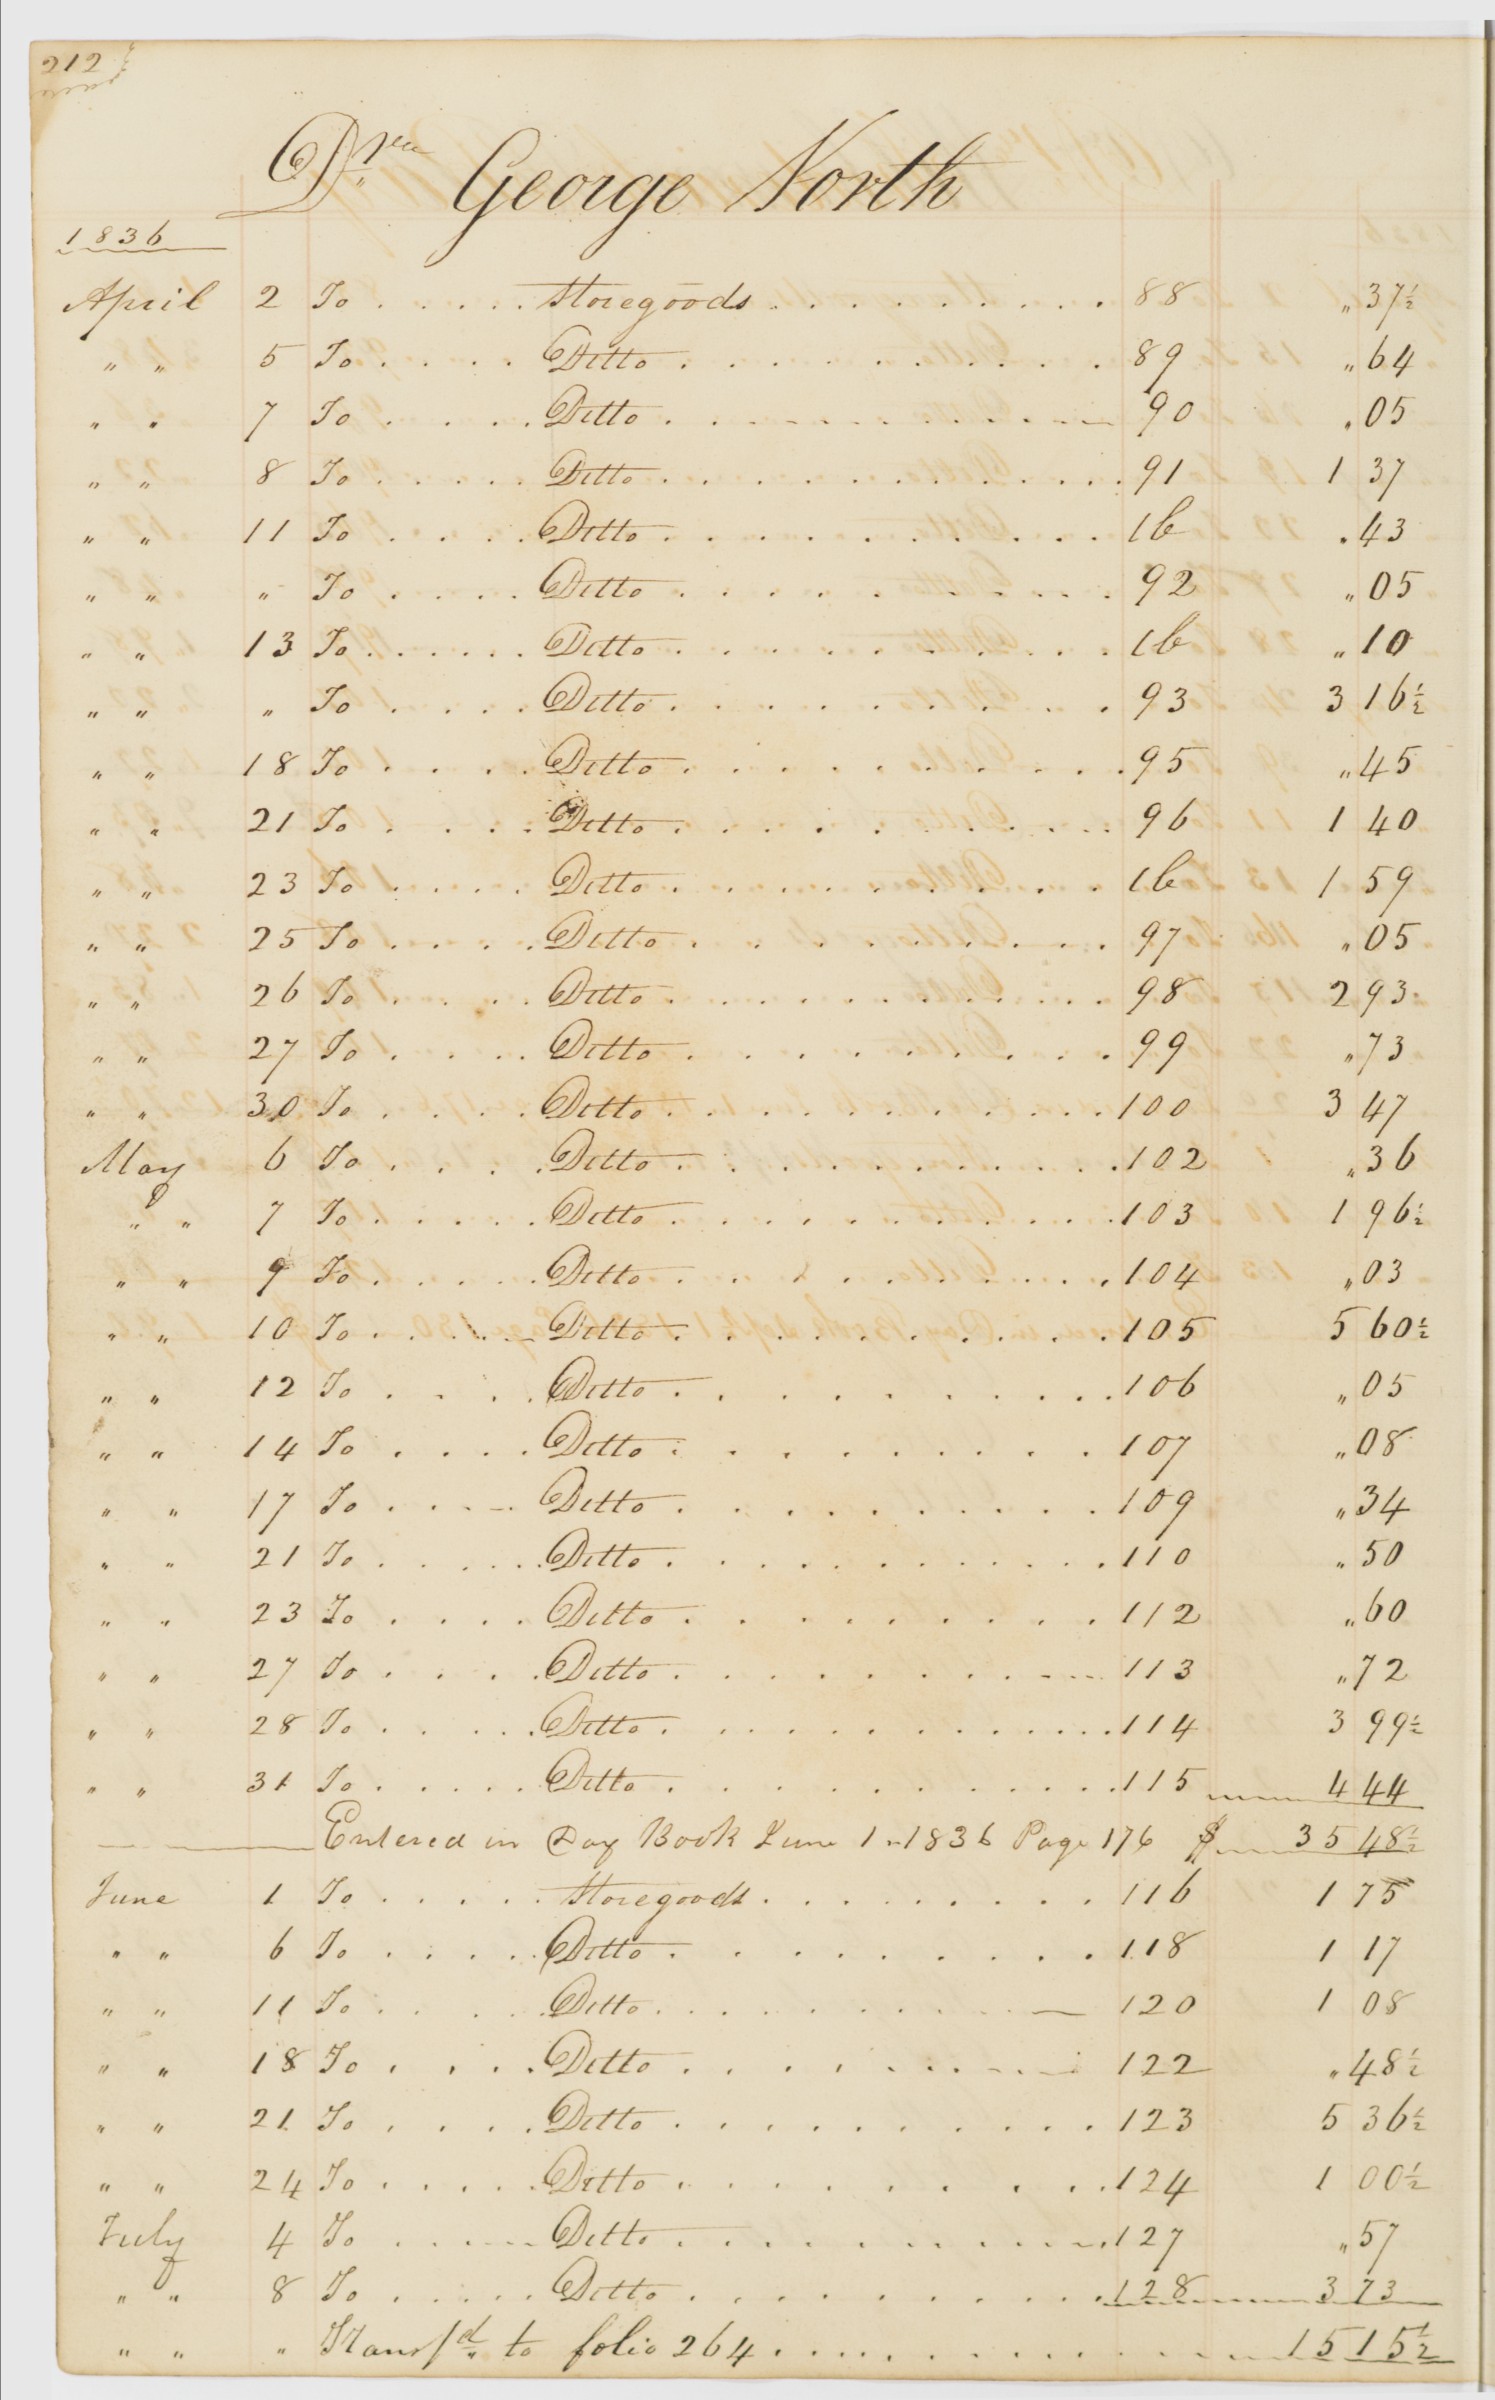 212
Dr George North
1836
April 2 To . . . . . Storegoods . . . . . . . . . 88 " 37½
" " 5 To . . . . Ditto . . . . . . . . . 89 " 64
" " 7 To . . . . Ditto . . . . . . . . . 90 " 05
" " 8 To . . . . . Ditto . . . . . . . . . 91 1 37
" " 11 To . . . . Ditto . . . . . . . . . Ib " 43
" " " To . . . . Ditto . . . . . . . . . 92 " 05
" " 13 To . . . . . . Ditto . . . . . . . . . Ib " 10
" " " To . . . . Ditto . . . . . . . . . 93 3 16½
" " 18 To . . . . Ditto . . . . . . . . . 95 " 45
" " 21 To . . . . Ditto . . . . . . . . . 96 1 40
" " 23 To . . . . Ditto . . . . . . . . . Ib 1 59
" " 25 To . . . . Ditto . . . . . . . . . 97 " 05
" " 26 To . . . . Ditto . . . . . . . . . 98 2 93
" " 27 To . . . . Ditto . . . . . . . . . 99 " 73
" " 30 To . . . . Ditto . . . . . . . . . 100 3 47
May 6 To . . . . Ditto . . . . . . . . . 102 " 36
" " 7 To . . . . . Ditto . . . . . . . . . 103 1 96½
" " 9 To . . . . . Ditto . . . . . . . . . 104 " 03
" " 10 To . . . . . Ditto . . . . . . . . . 105 5 60½
" " 12 To . . . . Ditto . . . . . . . . . 106 " 05
" " 14 To . . . . Ditto . . . . . . . . . 107 " 08
" " 17 To . . . . Ditto . . . . . . . . . 109 " 34
" " 21 To . . . . Ditto . . . . . . . . . 110 " 50
" " 23 To . . . . Ditto . . . . . . . . . 112 " 60
" " 27 To . . . . Ditto . . . . . . . . . 113 " 72
" " 28 To . . . . . Ditto . . . . . . . . . 114 3 99½
" " 31 To . . . . . Ditto . . . . . . . . . 115 4 44
Entered in Day Book June 1 " 1836 Page 176 $ 35 48½
June 1 To . . . . . Storegoods . . . . . . . . . 116 1 75
" " 6 To . . . . . Ditto . . . . . . . . . 118 1 17
" " 11 To . . . . Ditto . . . . . . . . . 120 1 08
" " 18 To . . . . Ditto . . . . . . . . . 122 " 48½
" " 21 To . . . . Ditto . . . . . . . . . 123 5 36½
" " 24 To . . . . . Ditto . . . . . . . . . 124 1 00½
July 4 To . . . . Ditto . . . . . . . . . 127 " 57
" " 8 To . . . . . Ditto . . . . . . . . . 128 3 73
" " " Transf'd to folio 264 . . . . . . . . . 15 15½